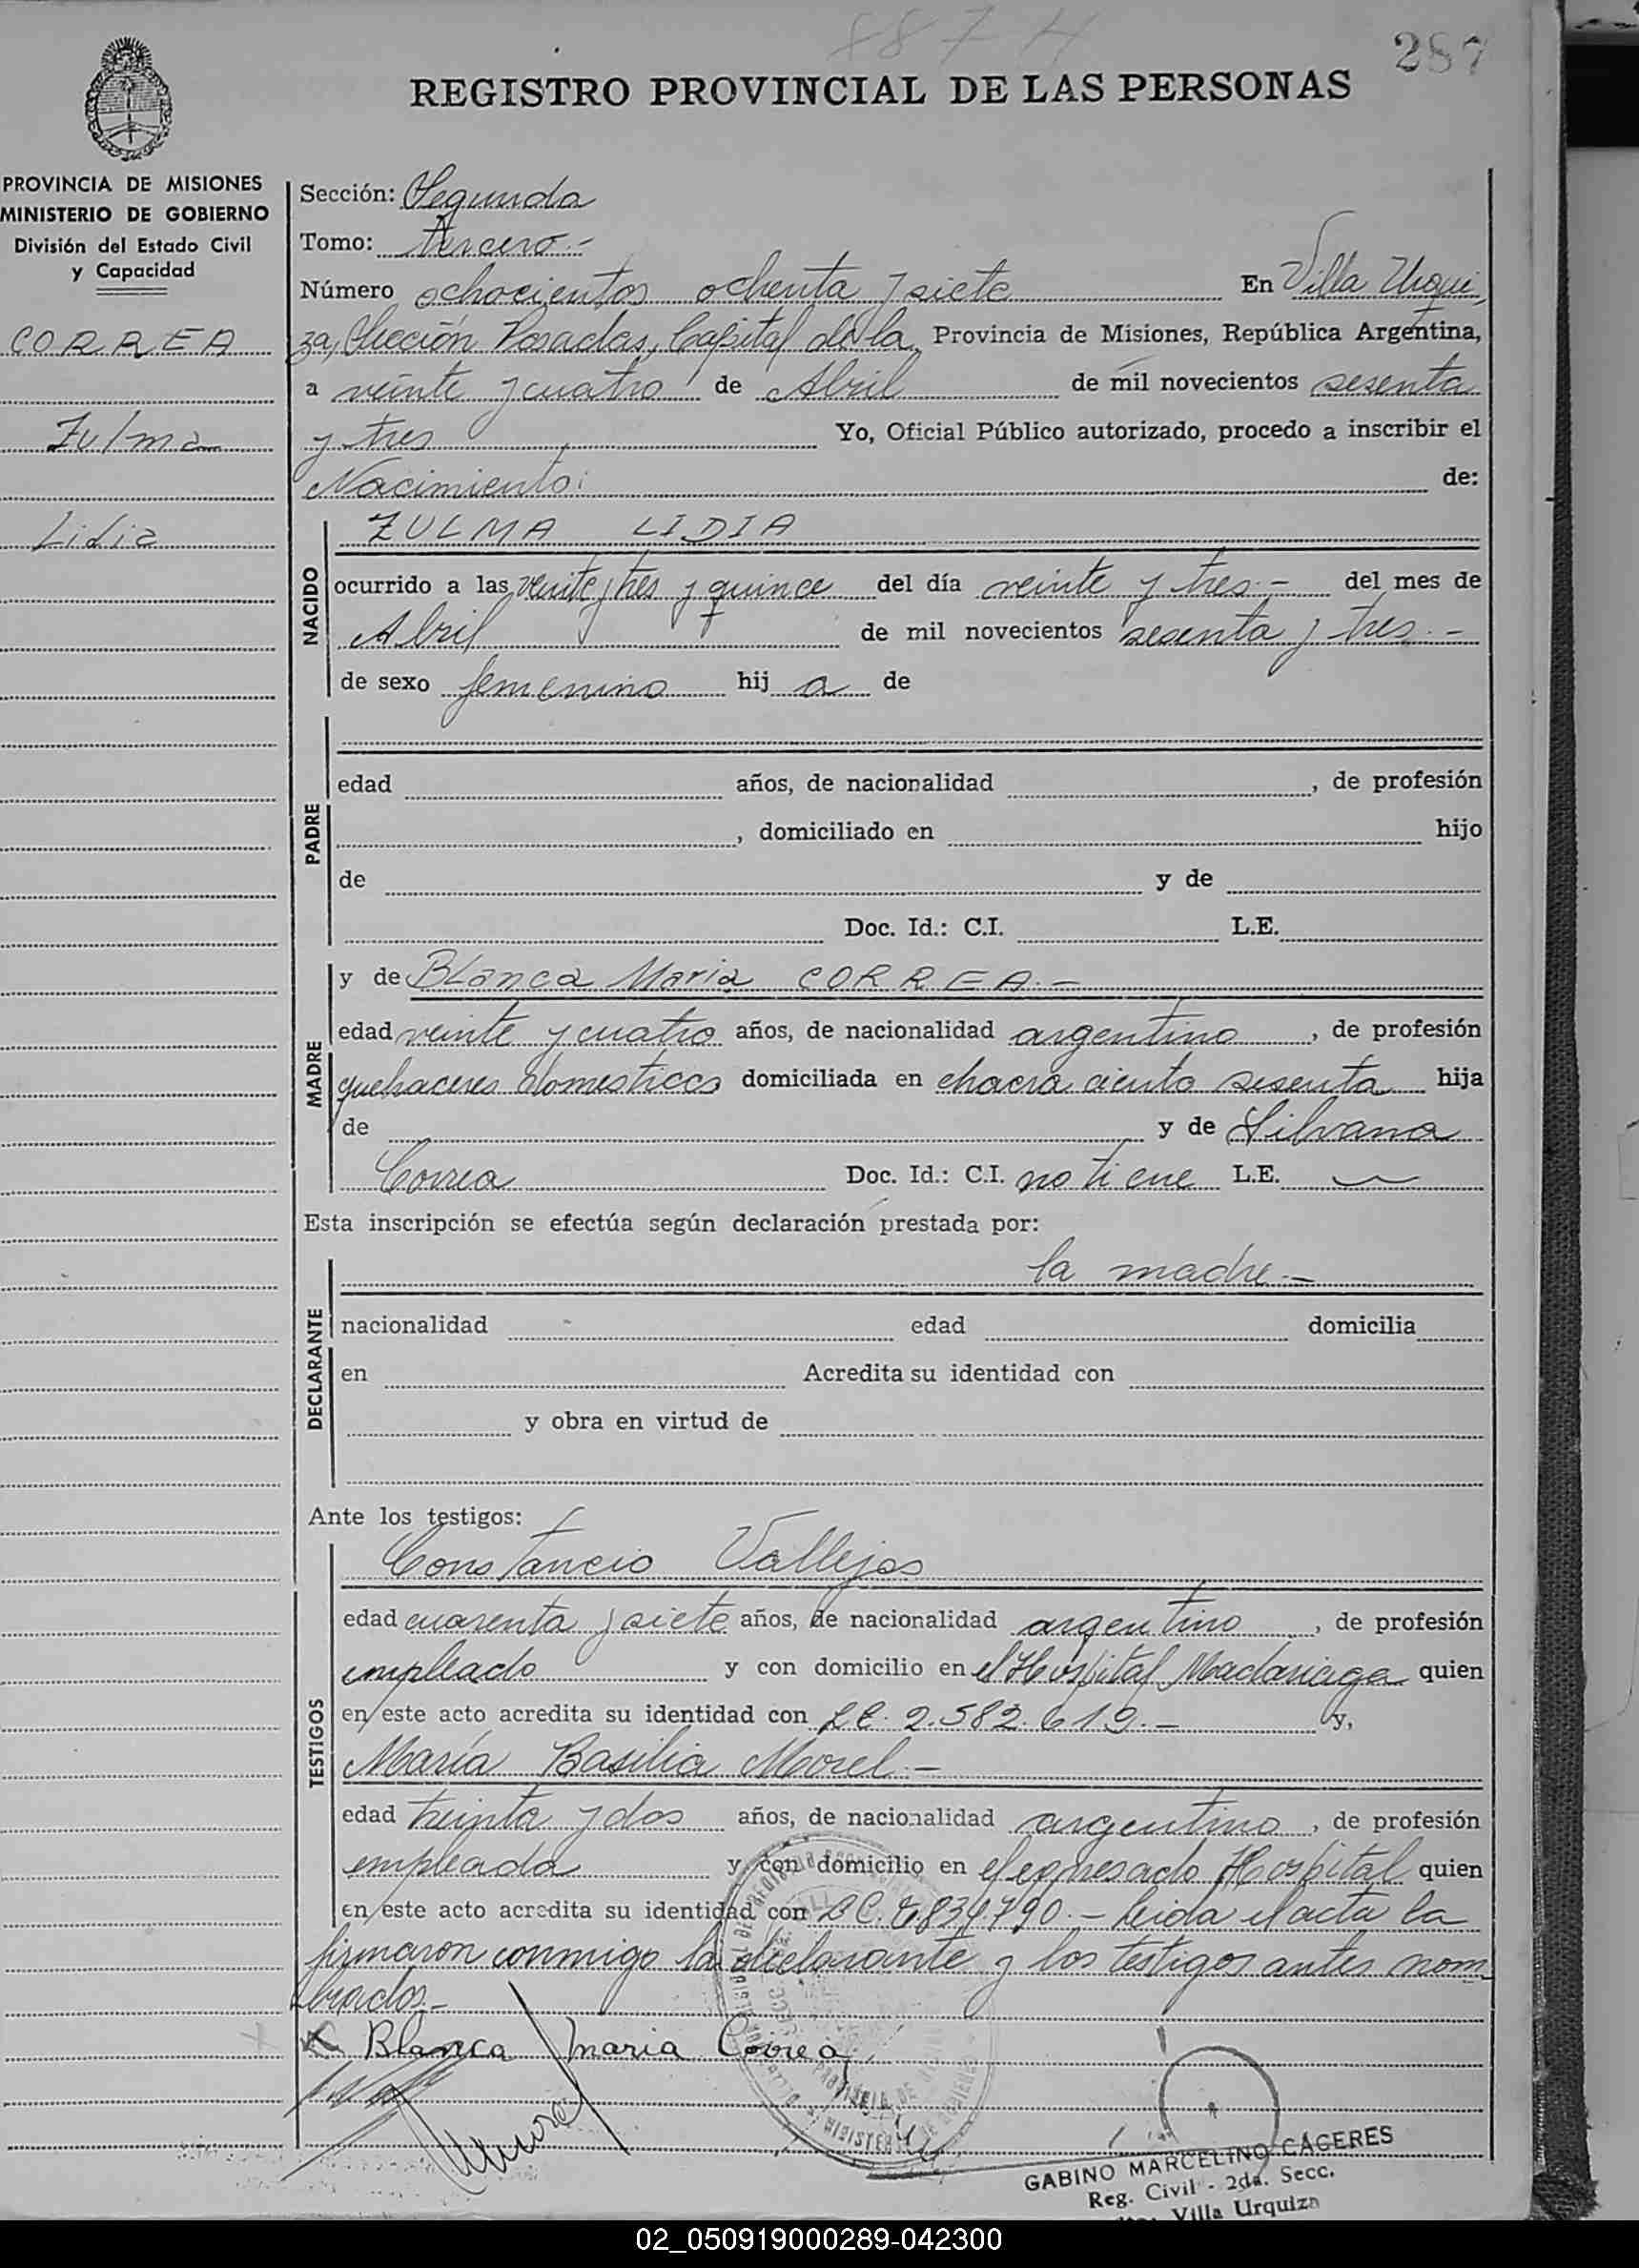 887 H
287
REGISTRO PROVINCIAL DE LAS PERSONAS
PROVINCIA DE MISIONES
MINISTERIO DE GOBIERNO
División del Estado Civil
y Capacidad
CORREA
Zulma
Lidia
Sección: Segunda
Tomo: Tercero.-
Número ochocientos ochenta y siete En Villa Urqui
za, Sección Posadas, Capital de la Provincia de Misiones, República Argentina,
a veinte y cuatro de Abril de mil novecientos sesenta
y tres Yo, Oficial Público autorizado, procedo a inscribir el
Nacimiento: de:
NACIDO
ZULMA LIDIA
ocurrido a las veinte y tres y quince del día veinte y tres.- del mes de
Abril de mil novecientos sesenta y tres.-
de sexo femenino hij a de
PADRE
edad años, de nacionalidad , de profesión
, domiciliado en hijo
de y de
Doc. Id.: C.I. L.E.
MADRE
y de Blanca Maria CORREA.-
edad veinte y cuatro años, de nacionalidad argentino , de profesión
quehaceres domesticos domiciliada en chacra ciento sesenta hija
de y de Silvana
Correa Doc. Id.: C.I. no tiene L.E.
Esta inscripción se efectúa según declaración prestada por:
DECLARANTE
la madre.-
nacionalidad edad domicilia
en Acredita su identidad con
y obra en virtud de
Ante los testigos:
TESTIGOS
Constancio Vallejos
edad cuarenta y siete años, de nacionalidad argentino , de profesión
empleado y con domicilio en el Hospital Madariaga quien
en este acto acredita su identidad con L.E. 2.582.619.- y,
María Basilia Morel.-
edad treinta y dos años, de nacionalidad argentino , de profesión
empleada y con domicilio en el expresado Hospital quien
en este acto acredita su identidad con LC. 6834790.- Leida el acta la
firmaron conmigo la declarante y los testigos antes nom
brados.-
Blanca Maria Correa
GABINO MARCELINO CACERES
Reg. Civil - 2da. Secc.
Villa Urquiza
02_050919000289-042300